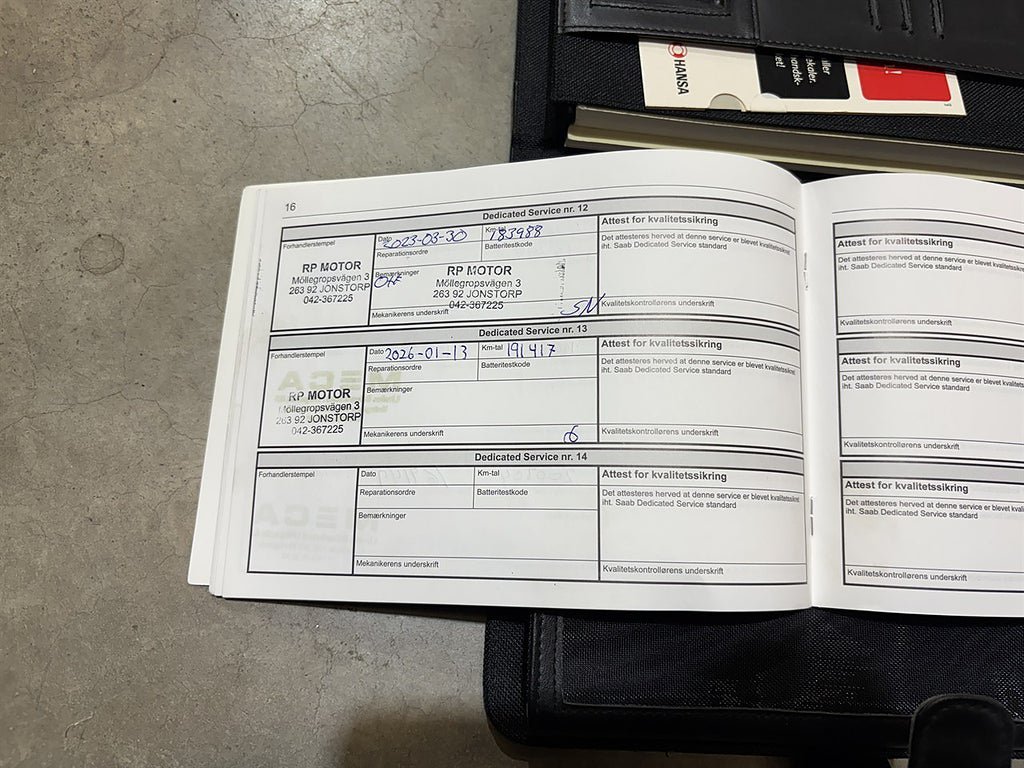 HANSA
16
Dedicated Service nr. 12
Forhandlerstempel
Dato 2023-03-30
Km-tal 183988
Reparationsordre
Batteritestkode
Bemærkninger
RP MOTOR
Möllegropsvägen 3
263 92 JONSTORP
042-367225
RP MOTOR
Möllegropsvägen 3
263 92 JONSTORP
042-367225
Mekanikerens underskrift
Attest for kvalitetssikring
Det attesteres herved at denne service er blevet kvalitetssikret
iht. Saab Dedicated Service standard
Kvalitetskontrollørens underskrift
Dedicated Service nr. 13
Forhandlerstempel
Dato 2026-01-13
Km-tal 191417
Reparationsordre
Batteritestkode
Bemærkninger
RP MOTOR
Möllegropsvägen 3
263 92 JONSTORP
042-367225
Mekanikerens underskrift
Attest for kvalitetssikring
Det attesteres herved at denne service er blevet kvalitetssikret
iht. Saab Dedicated Service standard
Kvalitetskontrollørens underskrift
Dedicated Service nr. 14
Forhandlerstempel
Dato
Km-tal
Reparationsordre
Batteritestkode
Bemærkninger
Mekanikerens underskrift
Attest for kvalitetssikring
Det attesteres herved at denne service er blevet kvalitetssikret
iht. Saab Dedicated Service standard
Kvalitetskontrollørens underskrift
Attest for kvalitetssikring
Det attesteres herved at denne service er blevet kvalitetssikret
iht. Saab Dedicated Service standard
Kvalitetskontrollørens underskrift
Attest for kvalitetssikring
Det attesteres herved at denne service er blevet
iht. Saab Dedicated Service standard
Kvalitetskontrollørens underskrift
Attest for kvalitetssikring
Det attesteres herved at denne service er blevet
iht. Saab Dedicated Service standard
Kvalitetskontrollørens underskrift